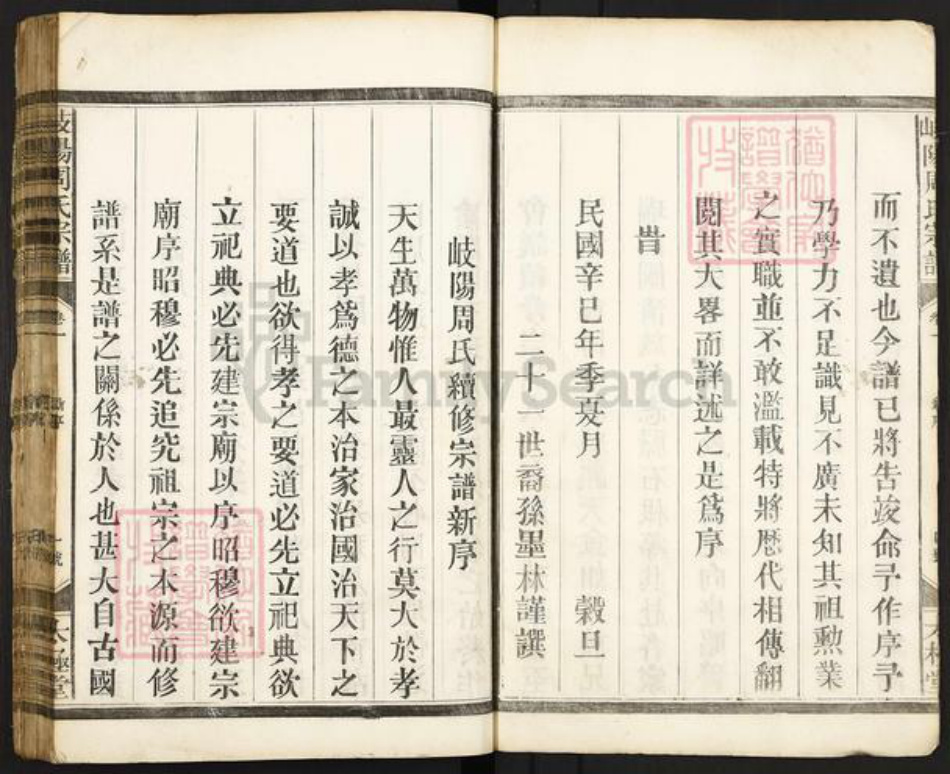 而不遺也今譜已將告竣命予作序予
乃學力不足識見不廣未知其祖勲業
之實職並不敢濫載特將歷代相傳翻
閱其大畧而詳述之是爲序
旹
民國辛巳年季夏月 穀旦
二十一世裔孫墨林謹譔
岐陽周氏續修宗譜新序
天生萬物惟人最靈人之行莫大於孝
誠以孝爲德之本治家治國治天下之
要道也欲得孝之要道必先立祀典欲
立祀典必先建宗廟以序昭穆欲建宗
廟序昭穆必先追究祖宗之本源而修
譜系是譜之關係於人也甚大自古國
岐陽周氏宗譜 卷一
FamilySearch